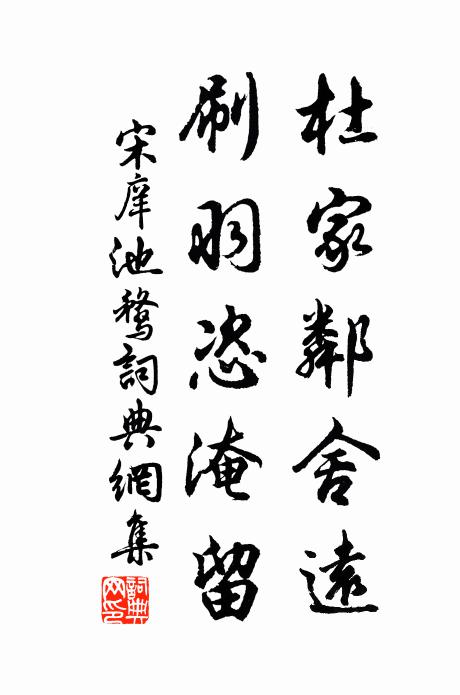 杜家鄰舍遠
刷羽恣淹留
宋庠池鶩詞典網集
詞典網印